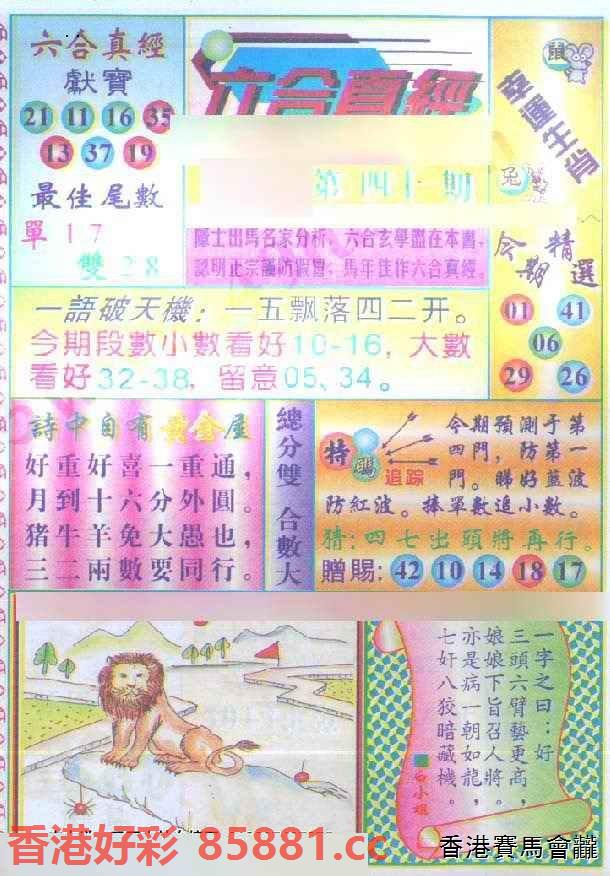 六合真經
獻寶
21 11 16 35
13 37 19
最佳尾數
單 1 7
雙 2 8
六合真經
第四十 期
隱士出馬名家分析，六合玄學盡在本書，
認明正宗謹防假冒，馬年佳作六合真經。
鼠
幸運生肖
兔
今期精選
01 41
06
29 26
一語破天機：一五飘落四二开。
今期段數小數看好10-16，大數
看好32-38，留意05、34。
詩中自有黃金屋
好重好喜一重通，
月到十六分外圓。
猪牛羊兔大愚也，
三二兩數要同行。
總分雙 合數大
特碼
追踪
今期預測于第
四門，防第一
門。睇好藍波
防紅波。捧單數追小數。
猜：四七出頭將再行。
贈賜：42 10 14 18 17
一字之曰：好
三頭六臂藝更高，
娘娘下旨召人將。
亦是病一朝如龍，
七奸八狡暗藏機。
白小姐
香港好彩 85881.cc
香港賽馬會